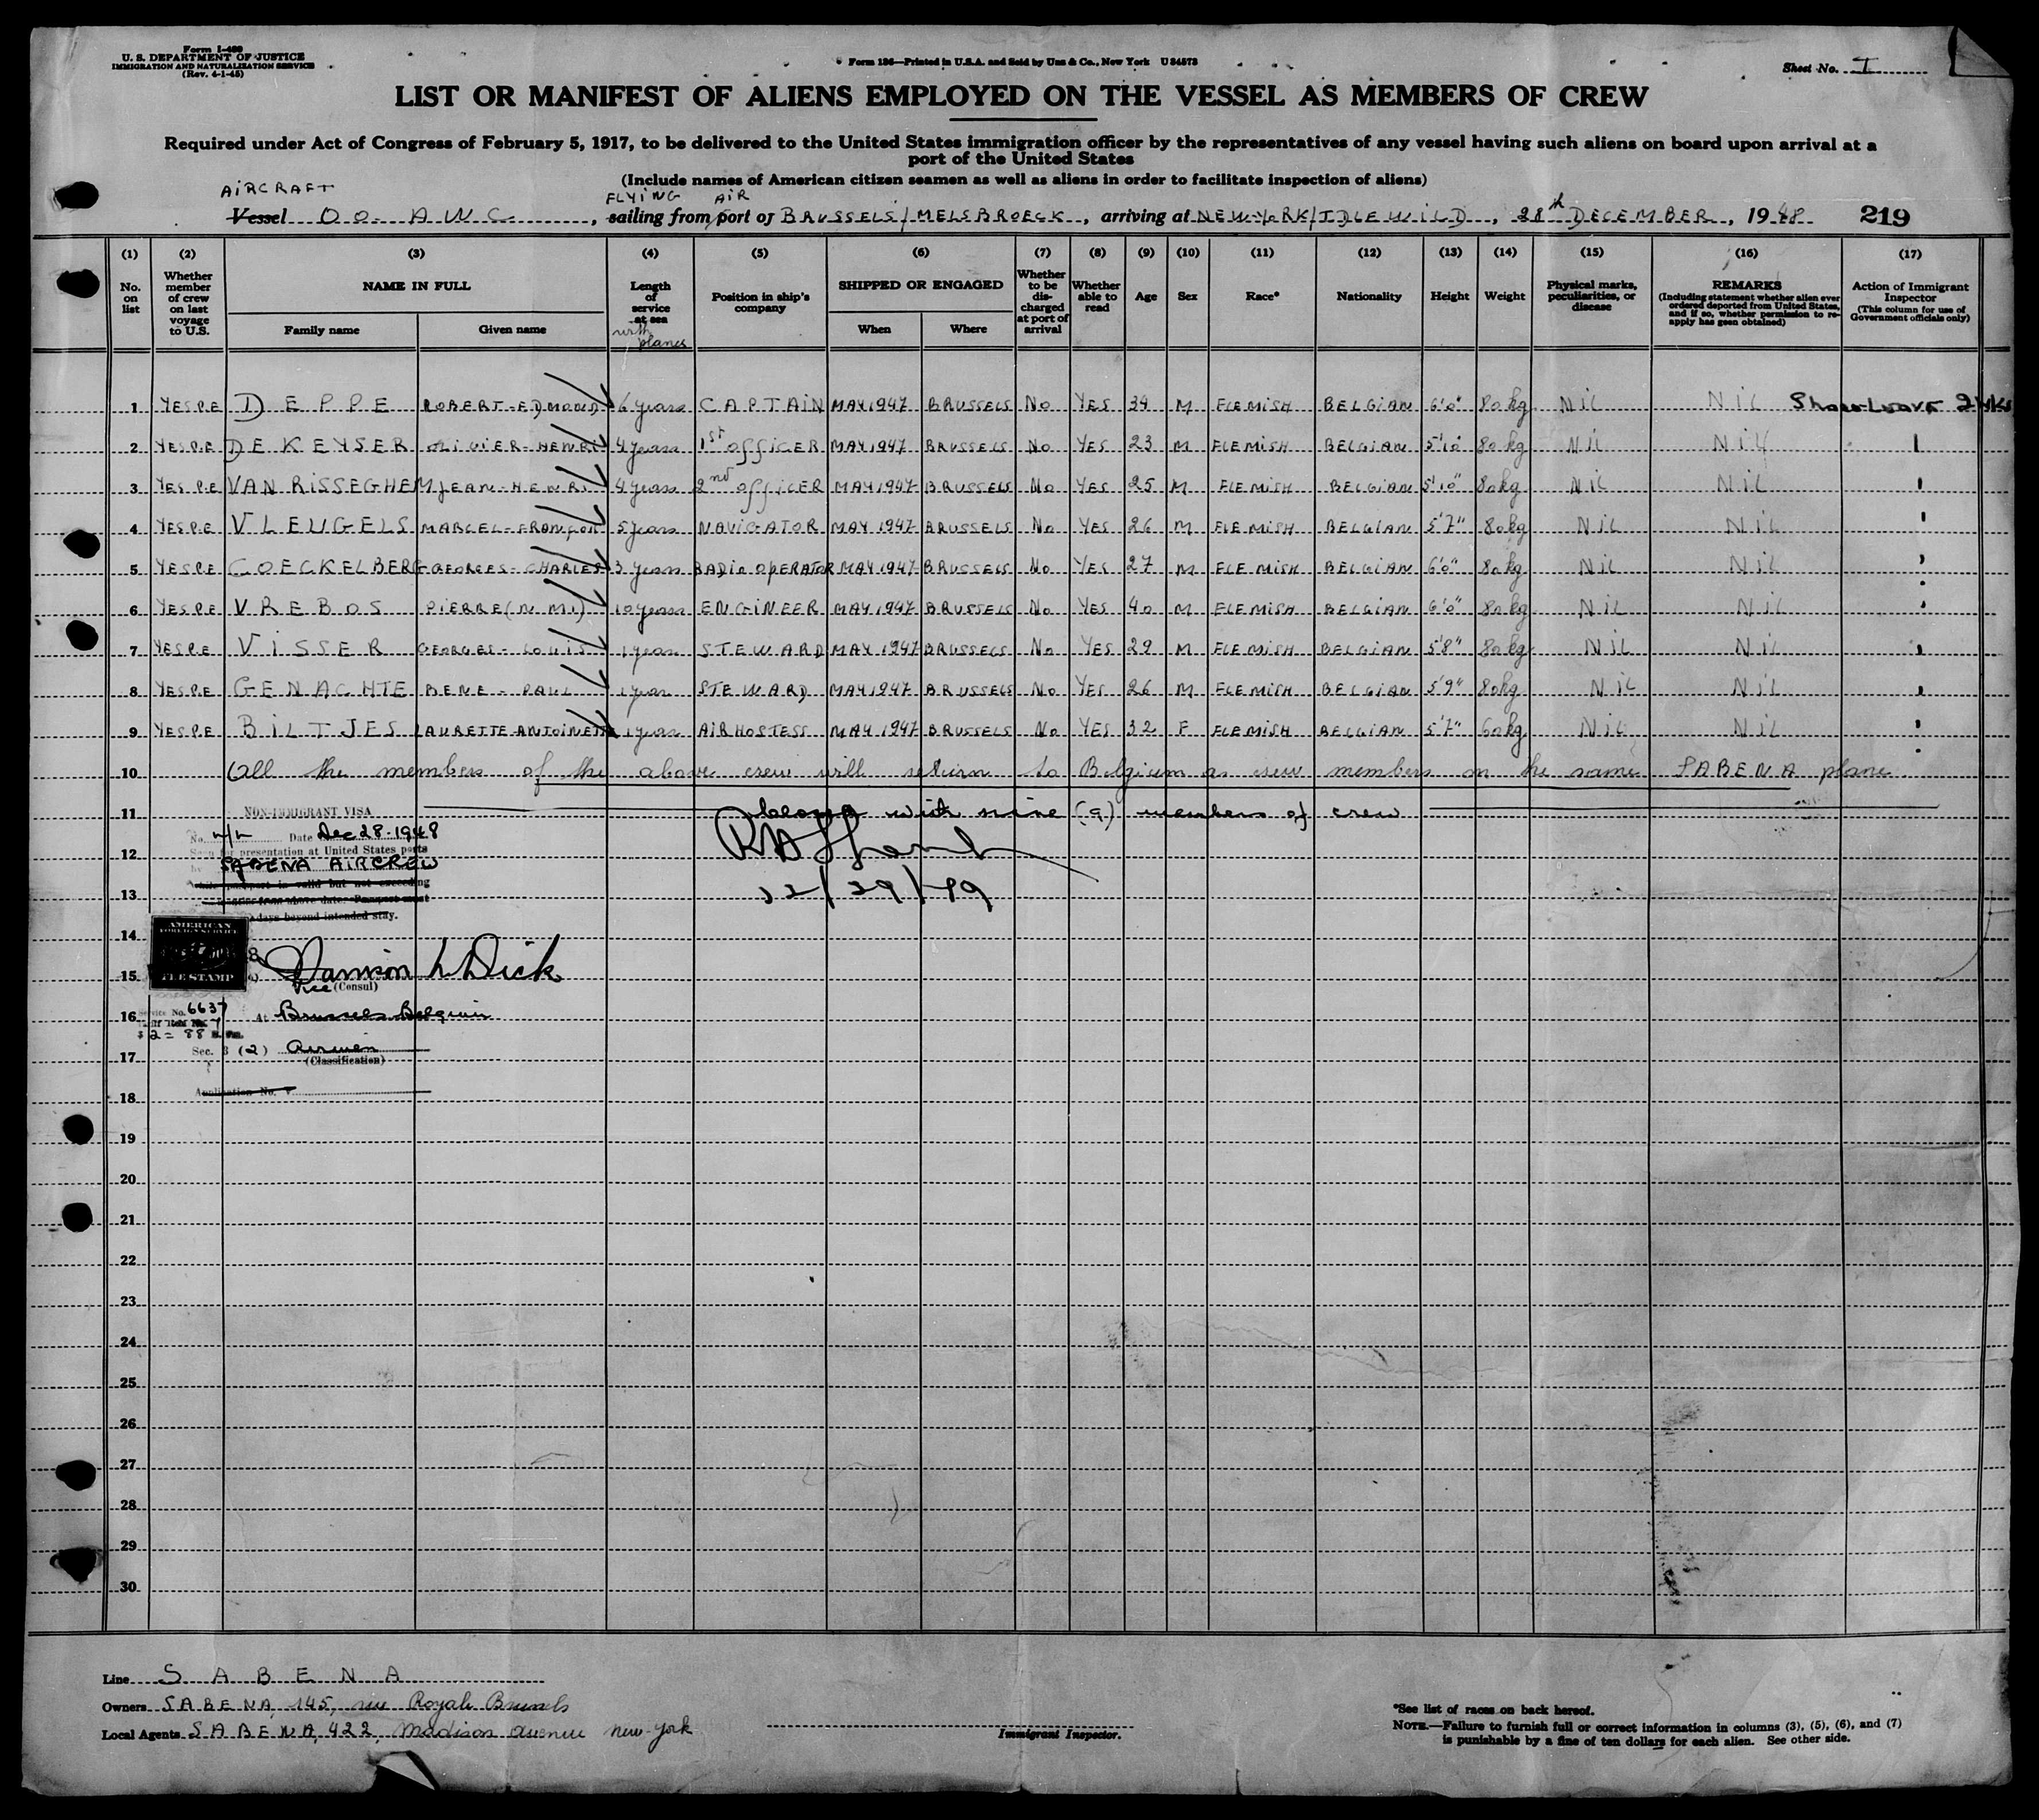 Form I-489
U. S. DEPARTMENT OF JUSTICE
IMMIGRATION AND NATURALIZATION SERVICE
(Rev. 4-1-45)
Form 186—Printed in U.S.A. and Sold by Unz & Co., New York U 34573
Sheet No. I
LIST OR MANIFEST OF ALIENS EMPLOYED ON THE VESSEL AS MEMBERS OF CREW
Required under Act of Congress of February 5, 1917, to be delivered to the United States immigration officer by the representatives of any vessel having such aliens on board upon arrival at a
port of the United States
(Include names of American citizen seamen as well as aliens in order to facilitate inspection of aliens)
AIRCRAFT FLYING AIR
Vessel OO-AWC, sailing from port of BRUSSELS/MELSBROECK, arriving at NEW-YORK/IDLEWILD, 28th DECEMBER, 1948 219
(1) (2) (3) (4) (5) (6) (7) (8) (9) (10) (11) (12) (13) (14) (15) (16) (17)
No. on list
Whether member of crew on last voyage to U.S.
NAME IN FULL
Family name Given name
Length of service at sea
with planes
Position in ship's company
SHIPPED OR ENGAGED
When Where
Whether to be discharged at port of arrival
Whether able to read
Age
Sex
Race*
Nationality
Height
Weight
Physical marks, peculiarities, or disease
REMARKS
(Including statement whether alien ever ordered deported from United States, and if so, whether permission to re-apply has been obtained)
Action of Immigrant Inspector
(This column for use of Government officials only)
1 YES P.E DEPPE ROBERT-EDMOND 6 years CAPTAIN MAY 1947 BRUSSELS No YES 34 M FLEMISH BELGIAN 6'0" 80 kg Nil Nil Shore Leave 2 Wks
2 YES P.E DE KEYSER OLIVIER-HENRI 4 years 1st OFFICER MAY 1947 BRUSSELS No YES 23 M FLEMISH BELGIAN 5'10 80 kg Nil Nil "
3 YES P.E VAN RISSEGHEM JEAN-HENRI 4 years 2nd OFFICER MAY 1947 BRUSSELS No YES 25 M FLEMISH BELGIAN 5'10" 80 kg Nil Nil "
4 YES P.E VLEUGELS MARCEL-FRANÇOIS 5 years NAVIGATOR MAY 1947 BRUSSELS No YES 26 M FLEMISH BELGIAN 5'7" 80 kg Nil Nil "
5 YES P.E COECKELBERG GEORGES-CHARLES 3 years RADIO OPERATOR MAY 1947 BRUSSELS No YES 27 M FLEMISH BELGIAN 6'0" 80 kg Nil Nil "
6 YES P.E VREBOS PIERRE (N.M.I) 10 years ENGINEER MAY 1947 BRUSSELS No YES 40 M FLEMISH BELGIAN 6'0" 80 kg Nil Nil "
7 YES P.E VISSER GEORGES-LOUIS 1 year STEWARD MAY 1947 BRUSSELS No YES 29 M FLEMISH BELGIAN 5'8" 80 kg Nil Nil "
8 YES P.E GENACHTE RENE-PAUL 1 year STEWARD MAY 1947 BRUSSELS No YES 26 M FLEMISH BELGIAN 5'9" 80 kg Nil Nil "
9 YES P.E BILTJES LAURETTE-ANTOINETTE 1 year AIR HOSTESS MAY 1947 BRUSSELS No YES 32 F FLEMISH BELGIAN 5'7" 60 kg Nil Nil "
10 All the members of the above crew will return to Belgium as crew members on the same SABENA plane
11 with nine (9) members of crew
NON-IMMIGRANT VISA
No. Date Dec 28-1948
12 Seen for presentation at United States ports
by SABENA AIRCREW
while passport is valid but not exceeding
13
days beyond intended stay.
12/29/49
14
AMERICAN
FOREIGN SERVICE
FEE STAMP
15 Dick
Vice (Consul)
16 Service No. 6637 At Brussels Belgium
Tariff Item No. 7
$2 = 88
Sec. 3 (2) Airmen
17 (Classification)
Application No.
18
19
20
21
22
23
24
25
26
27
28
29
30
Line SABENA
Owners SABENA, 145, rue Royale Brussels
Local Agents SABENA, 422, Madison avenue new-york
Immigrant Inspector.
*See list of races on back hereof.
NOTE.—Failure to furnish full or correct information in columns (3), (5), (6), and (7)
is punishable by a fine of ten dollars for each alien. See other side.